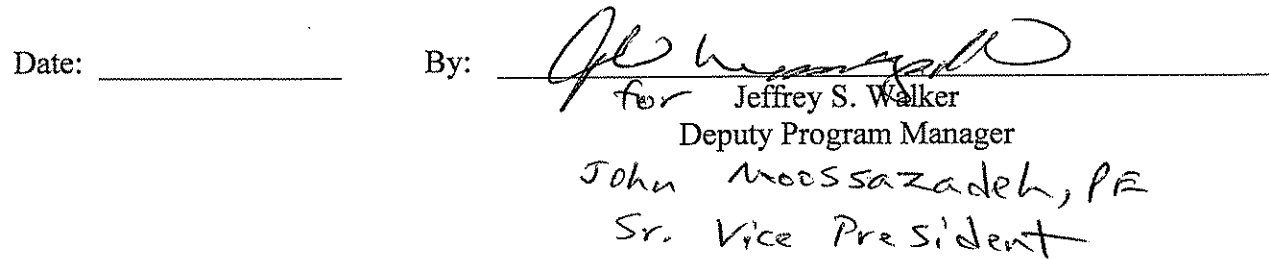 Date: By: John Moossazadeh
for Jeffrey S. Walker
Deputy Program Manager
John Moossazadeh, PE
Sr. Vice President